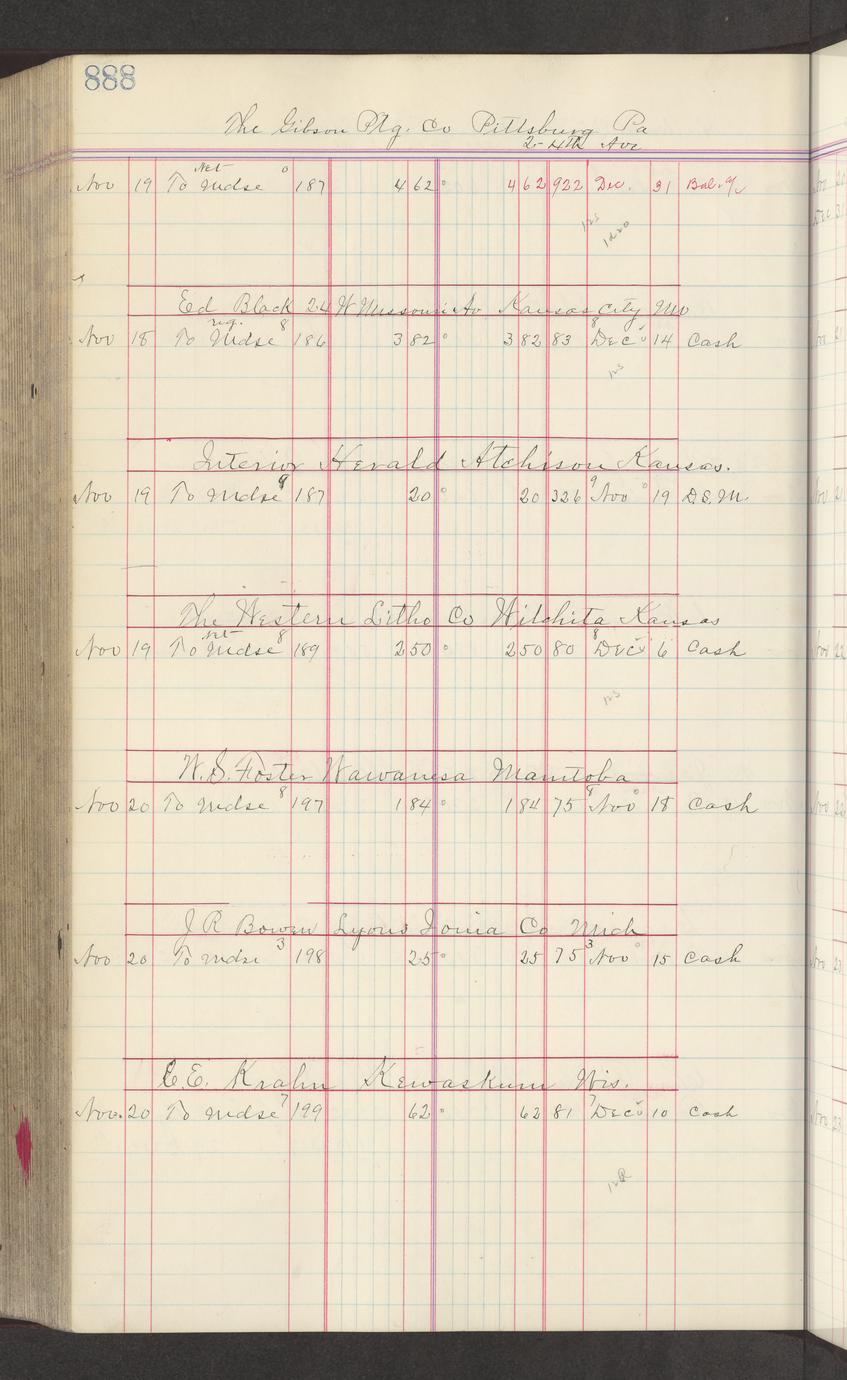 888
The Gibson Ptg. Co Pittsburg Pa
2-4th Ave
Net o
Nov 19 To Mdse 187 4 62 o 4 62 922 Dec. 31 Bal. a/c
Ed Black 24 W Missouri Av Kansas City Mo
reg. 8 8
Nov 18 To Mdse 186 3 82 o 3 82 83 Dec 14 Cash
123
Interior Herald Atchison Kansas.
Nov 19 To Mdse 9 187 20 o 20 326 9 Nov o 19 D.S.M.
The Western Litho Co Witchita Kansas
Net 8 8
Nov 19 To Mdse 189 2 50 o 2 50 80 Dec 6 Cash
123
W. S. Foster Wawanesa Manitoba
Nov 20 To Mdse 8 197 1 84 o 1 84 75 8 Nov o 18 Cash
J R Bowen Lyons Ionia Co Mich
Nov 20 To Mdse 3 198 25 o 25 75 3 Nov o 15 Cash
C. E. Krahn Kewaskum Wis.
Nov. 20 To Mdse 7 199 62 o 62 81 7 Dec 10 Cash